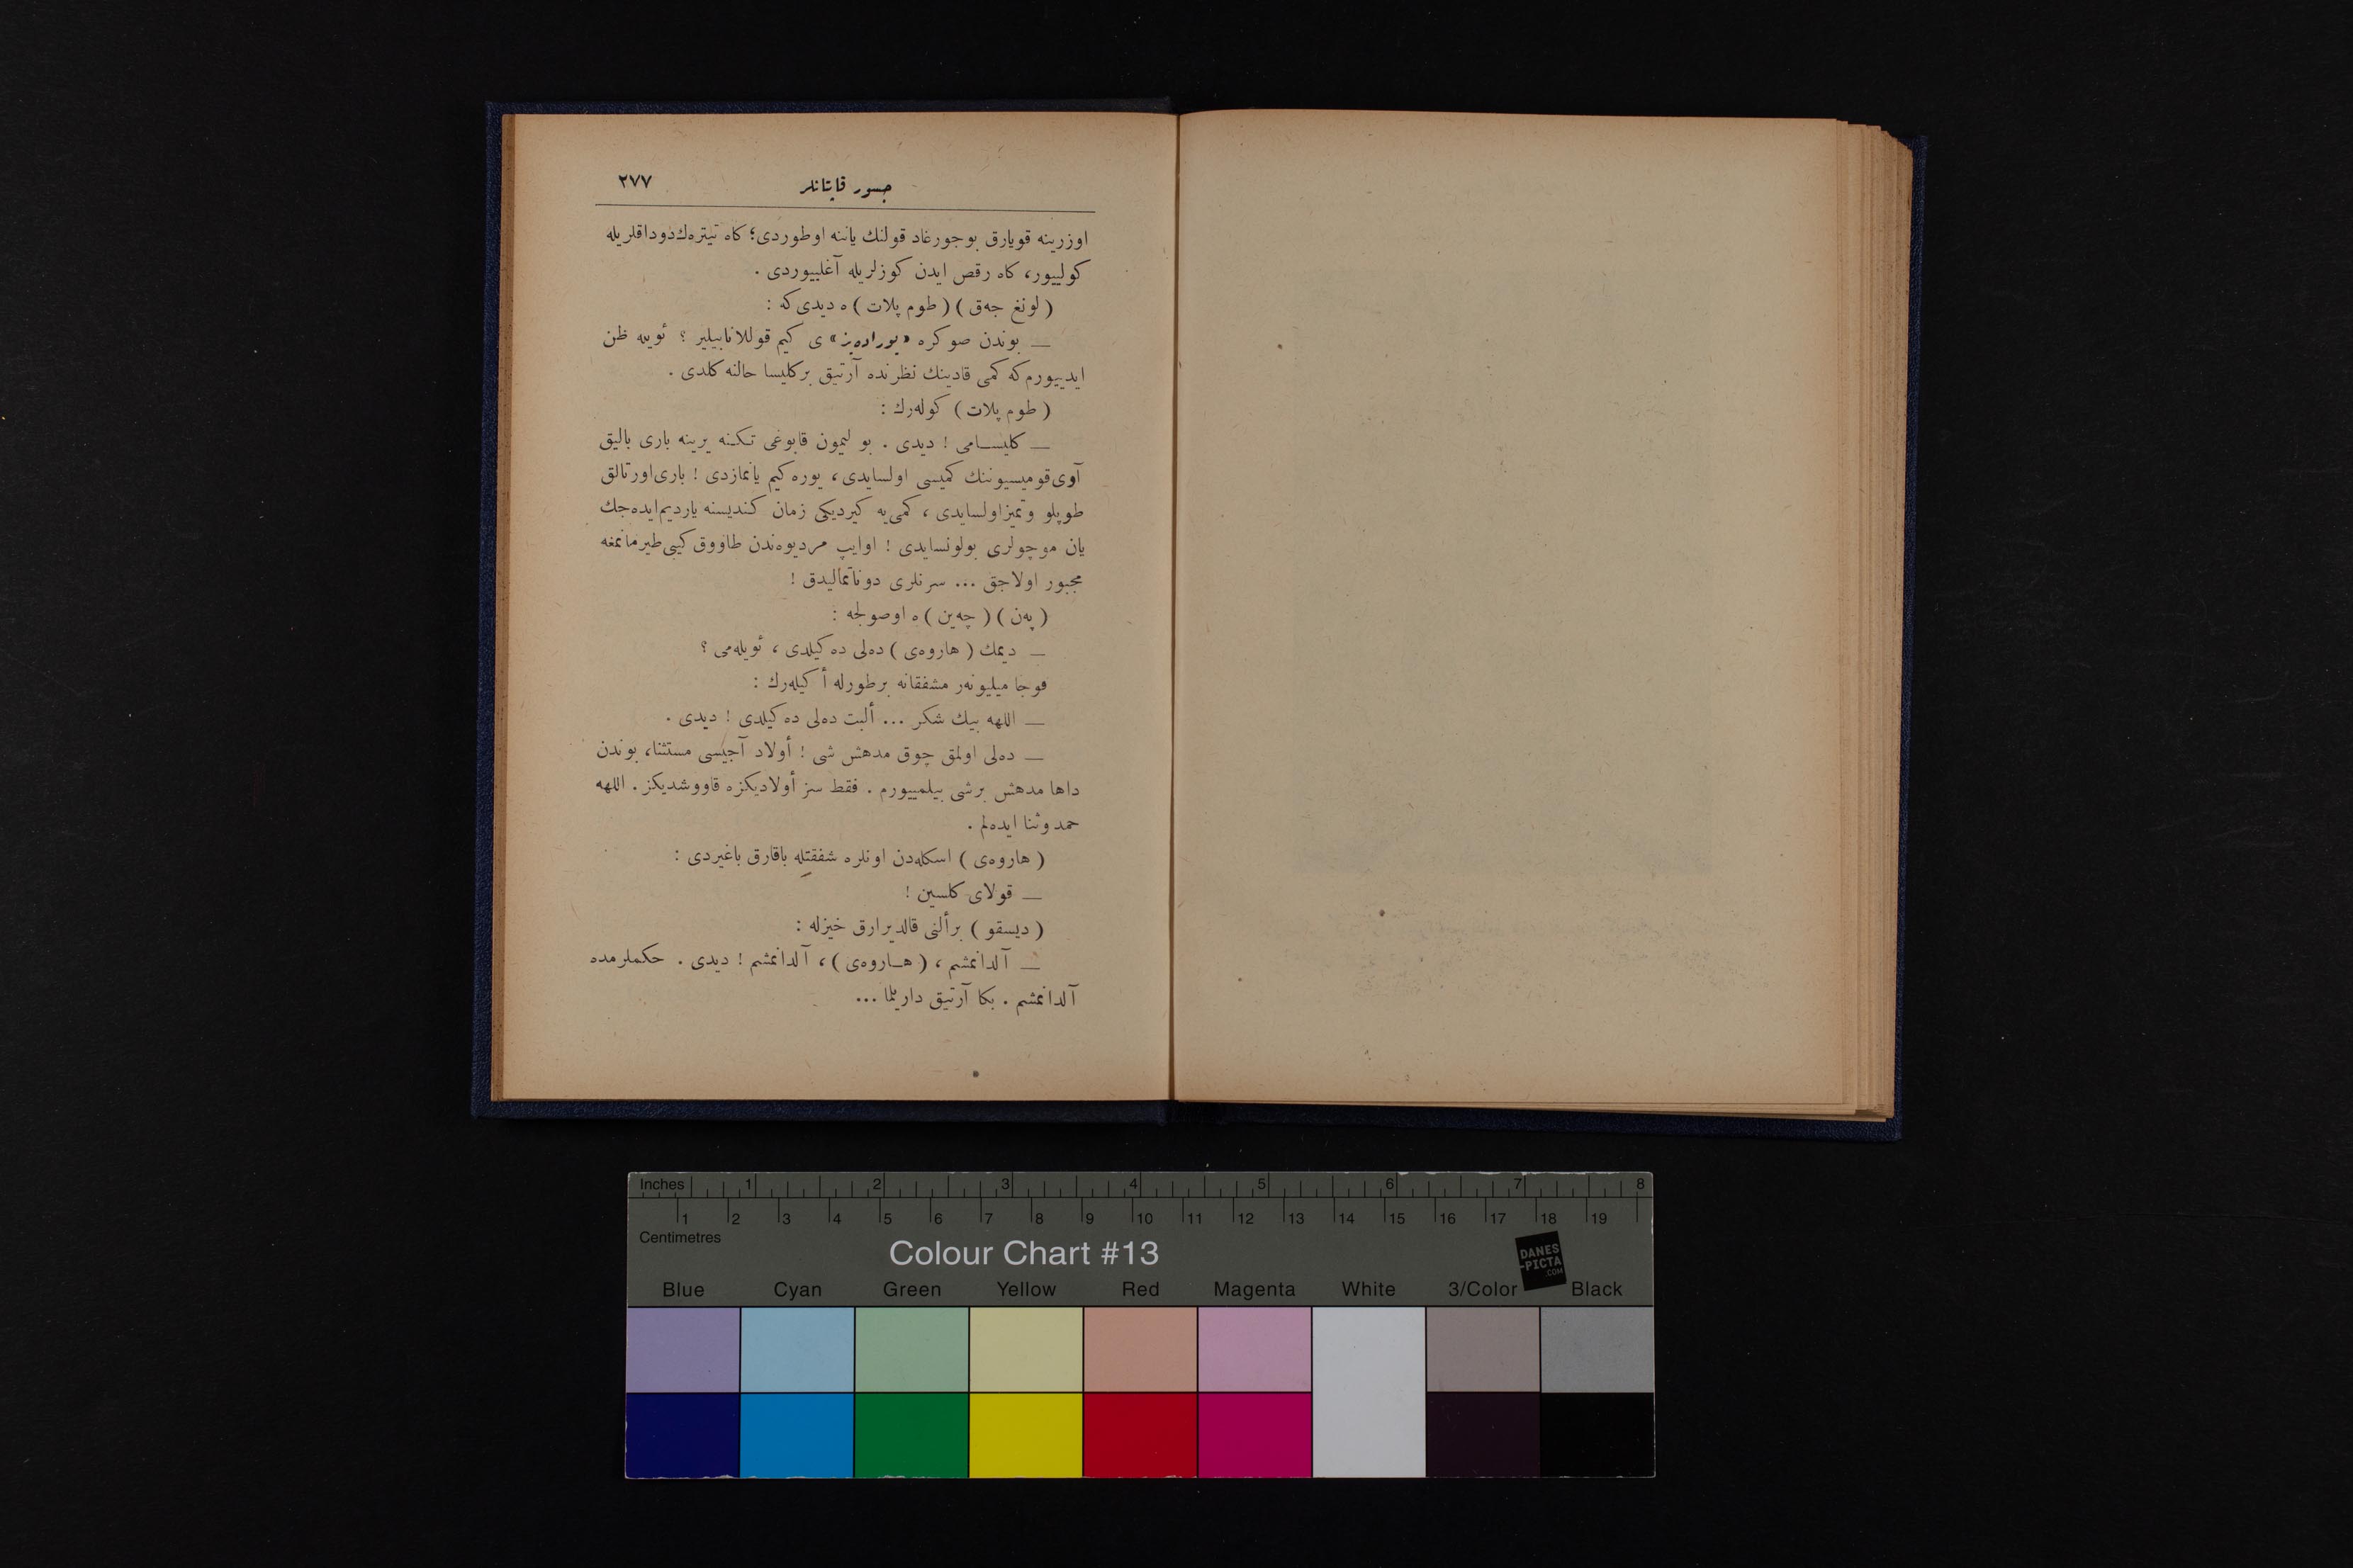 جسور قاپتانلر
٢٧٧
اوزرينه قويارق بوجورغاد قولنك ياننه اوطوردى؛ كاه تيترەك دوداقلريله
كولييور، كاه رقص ايدن كوزلريله آغلييوردى .
( لونغ جەق ) ( طوم پلات ) ه ديدى كه :
— بوندن صوكره «بورادەيز» ى كيم قوللانابيلير ؟ ئويله ظن
ايدييورم كه كمى قادينك نظرنده آرتيق بركليسا حالنه كلدى .
( طوم پلات ) كولەرك :
— كليسامى ! ديدى . بو ليمون قابوغى تكنه يرينه بارى باليق
آوى قوميسيوننك كميسى اولسايدى، يوره كيم يانمازدى ! بارى اورتالق
طوپلو وتميزاولسايدى ، كمى يه كيرديكى زمان كنديسنه يارديم ايدەجك
يان موچولرى بولونسايدى ! اوايپ مرديوەندن طاووق كيبى طيرمانمغه
مجبور اولاجق ... سرنلرى دوناتماليدق !
( پەن ) ( چەين ) ه اوصولجه :
— ديمك ( هاروەى ) دەلى دەكيلدى ، ئويلەمى ؟
قوجا ميليونەر مشفقانه برطورله أكيلەرك :
— اللهه بيك شكر ... ألبت دەلى دەكيلدى ! ديدى .
— دەلى اولمق چوق مدهش شى ! أولاد آجيسى مستثنا، بوندن
داها مدهش برشى بيلمييورم . فقط سز أولاديكزه قاووشديكز . اللهه
حمد وثنا ايدەلم .
( هاروەى ) اسكلەدن اونلره شفقتله باقارق باغيردى :
— قولاى كلسين !
( ديسقو ) برألنى قالديرارق خيزله :
— آلدانمشم ، ( هاروەى ) ، آلدانمشم ! ديدى . حكملرمده
آلدانمشم . بكا آرتيق داريلما ...
Inches 1 2 3 4 5 6 7 8
1 2 3 4 5 6 7 8 9 10 11 12 13 14 15 16 17 18 19
Centimetres
Colour Chart #13
DANES
-PICTA
.COM
Blue Cyan Green Yellow Red Magenta White 3/Color Black